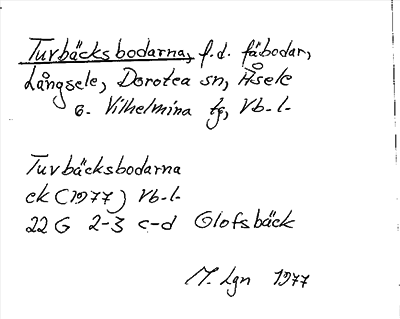 Turbäcksbodarna, f.d. fäbodar,
Långsele, Dorotea sn, Åsele
o. Vilhelmina tg, Vb.l.
Turbäcksbodarna
ek (1977) Vb.l.
22 G 2-3 c-d Olofsbäck
M. Lgn 1977